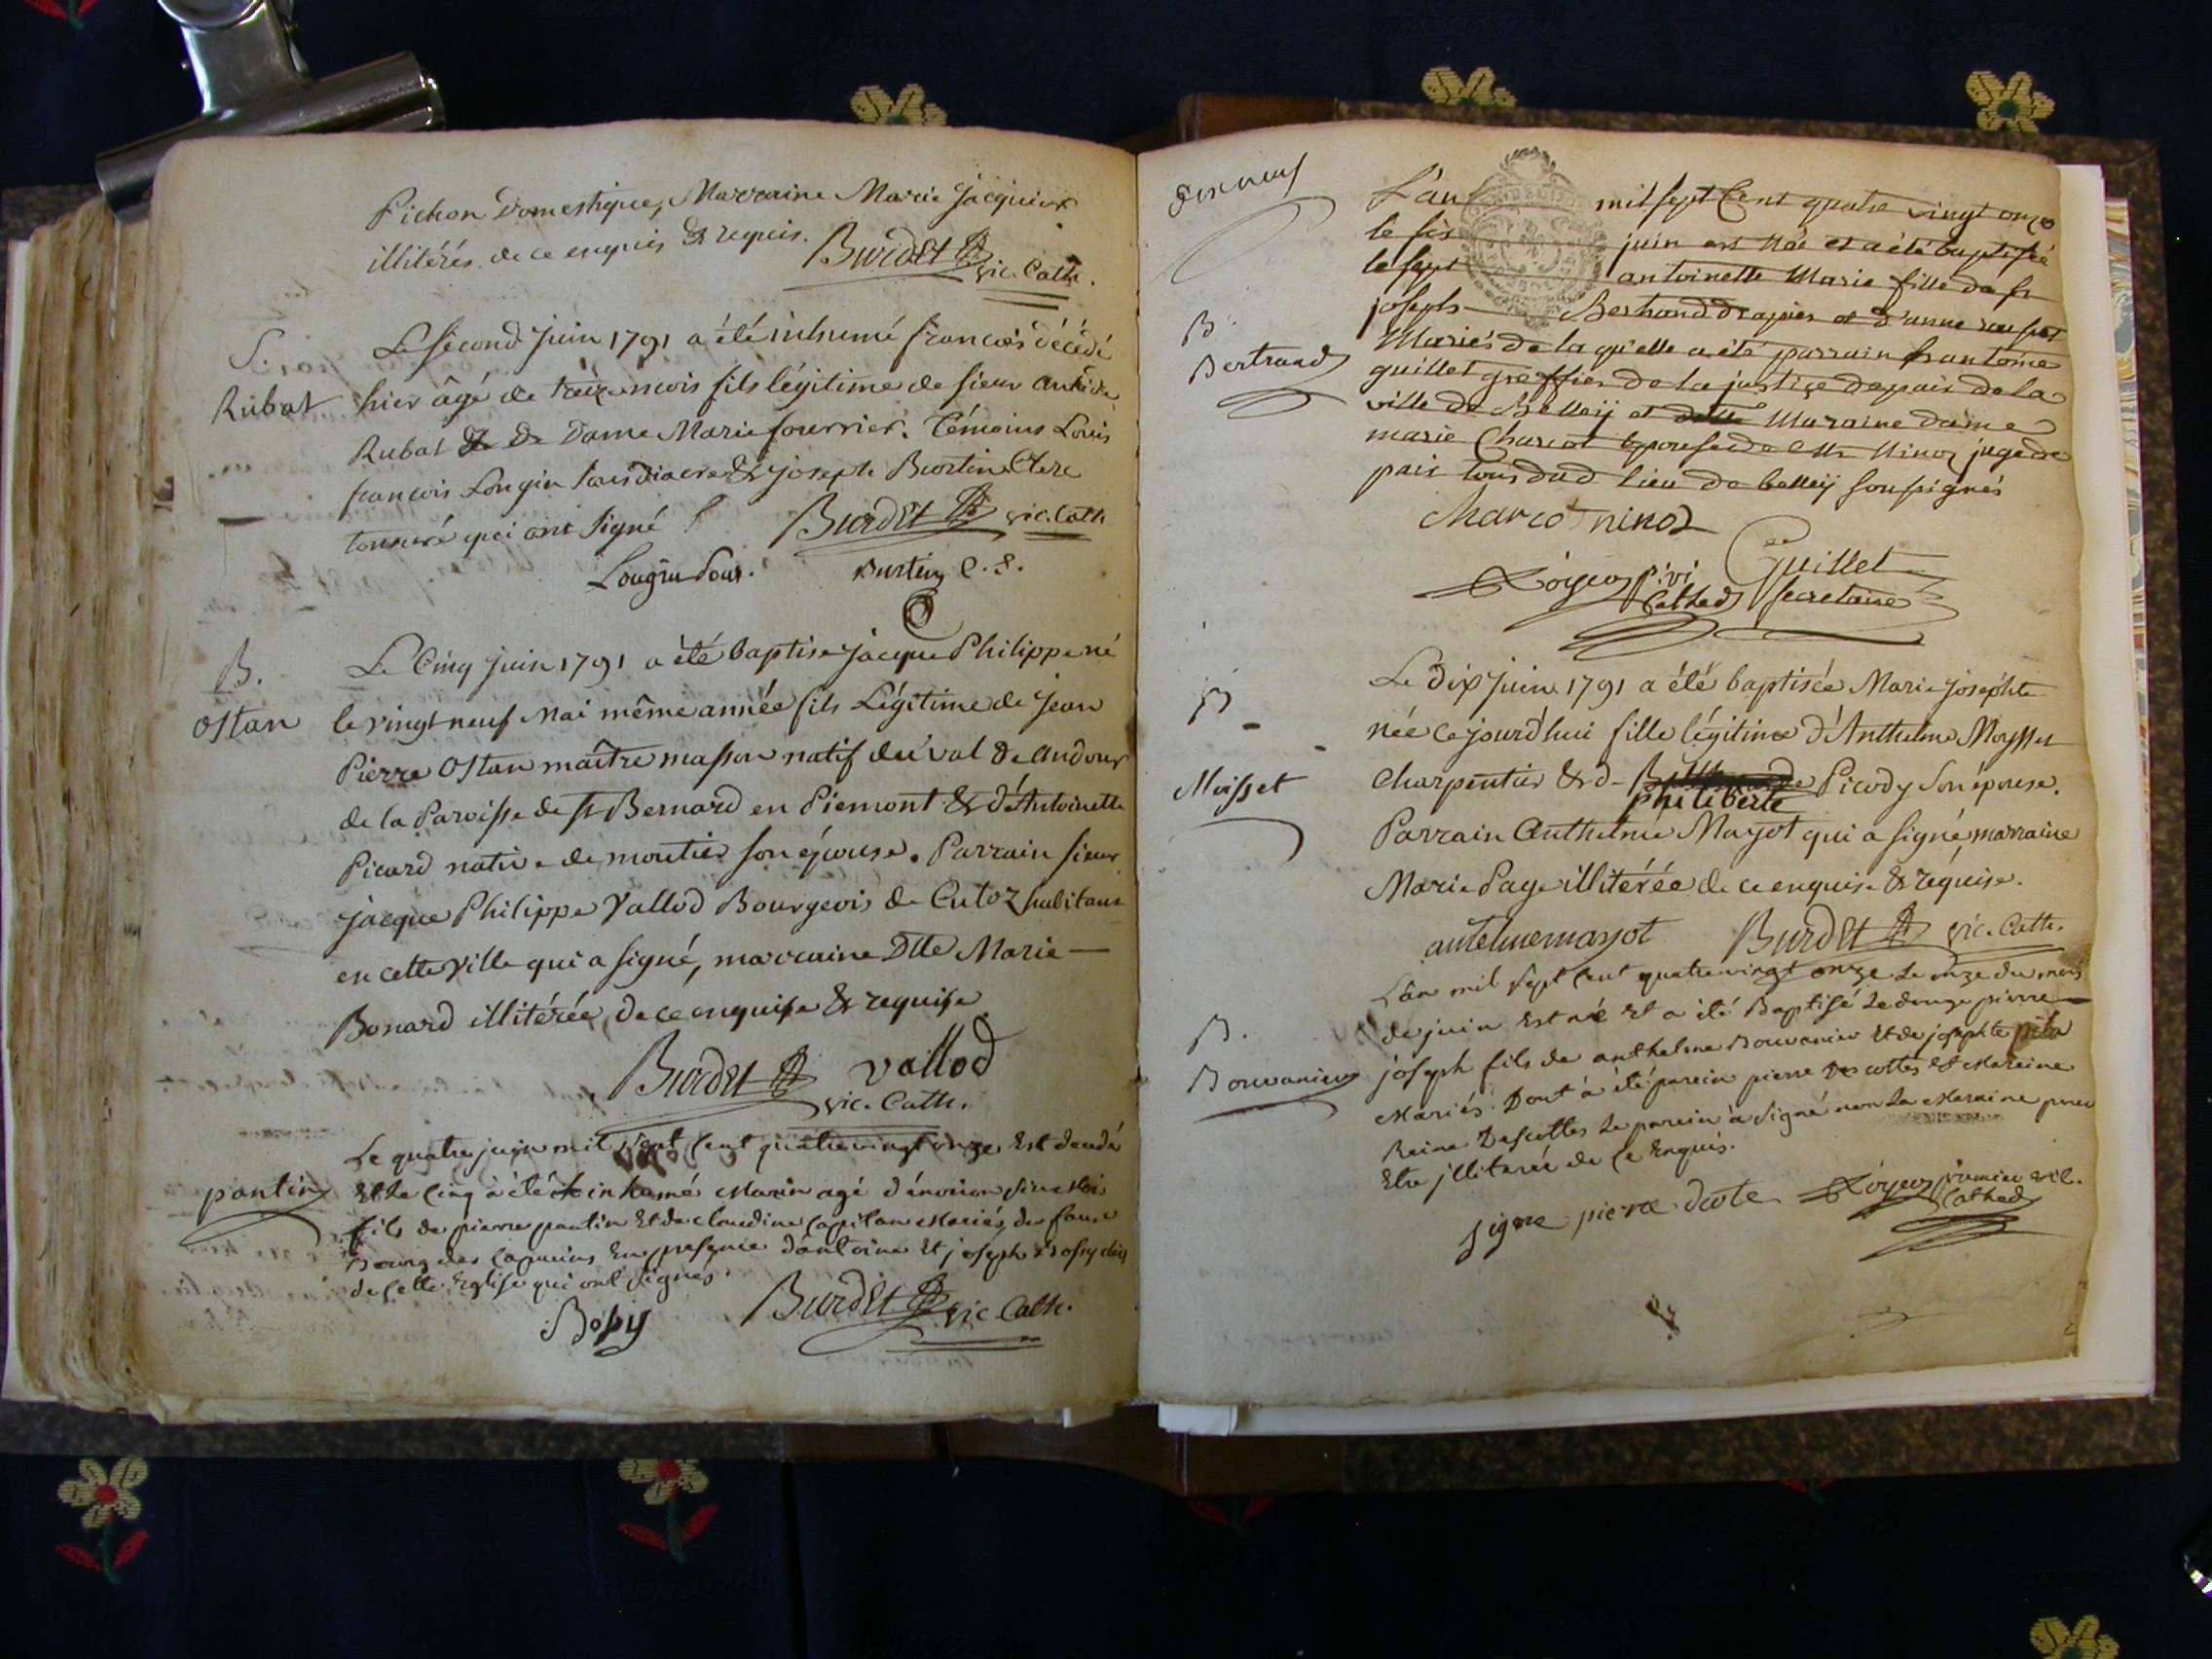 Pichon Domestique, Marraine Marie Jacquier
illitérés de ce enquis & requis. Burdet vic. Cath.
S.
Rubat
Le second Juin 1791 a été inhumé francois décédé
hier âgé de mois fils légitime de sieur
Rubat & De Dame Marie fourrier. Témoins Louis
francois Longin sousdiacre & joseph Burtin Clerc
tonsuré qui ont signé Burdet vic. Cath
Longin sous. Burtin C. T.
B.
Ostan
Le Cinq Juin 1791 a été baptisé Jacque Philippe né
le vingt neuf Mai même année fils Légitime de Jean
Pierre Ostan maître masson natif du val de
de la Paroisse de St Bernard en Piemont & d'Antoinette
Picard native de moutier son épouse. Parrain sieur
Jacque Philippe Vallod Bourgeois de habitant
en cette ville qui a signé, marraine Dlle Marie
Bonard illitérée, de ce enquise & requise
Burdet vallod
vic. Cath.
pantin
Le quatre juin mil Sept Cent quatre vingt onze Est decedé
Et le Cinq à été inhumé Marin agé d'environ
fils de pierre pantin Et de claudine capitan Mariés du faux
Bourg des capucins En presence d'antoine Et joseph
de Cette Eglise qui ont Signés.
Burdet vic. Cath.
B.
Bertrand
L'an mil sept Cent quatre vingt onze
le six juin est née et a été baptisée
le sept antoinette Marie fille de sr
joseph Bertrand drapier et d'anne
Mariés de laquelle a été parrain sr antoine
guillet greffier de la justice de paix de la
ville de Belleÿ et Maraine dame
marie Charcot Epouse de Mr Ninoz juge de
paix tous dud lieu de belleÿ soussignés
Charcot ninoz
Guillet
p. vi Cathed secretaire
B
Moisset
Le Dix Juin 1791 a été baptisée Marie josephte
née cejourd'hui fille légitime d'Anthelme Moysset
Charpentier & d- philiberte Picody Son épouse.
Parrain Anthelme Mayot qui a signé, marraine
Marie Page illitérée de ce enquise & requise.
antelme mayot Burdet vic. Cath.
B.
Bouvanier
L'an mil Sept Cent quatre vingt onze Le onze du mois
de juin Est né Et a été Baptisé Le douze pierre
joseph fils de anthelme Bouvanier Et de josephte
Mariés. Dont à été parein pierre Descottes Et Mareine
Reine Descottes Le parein à Signé non La Maraine pour
Etre jllitarée de Ce Enquis.
signe pierre premier vic.
Cathed